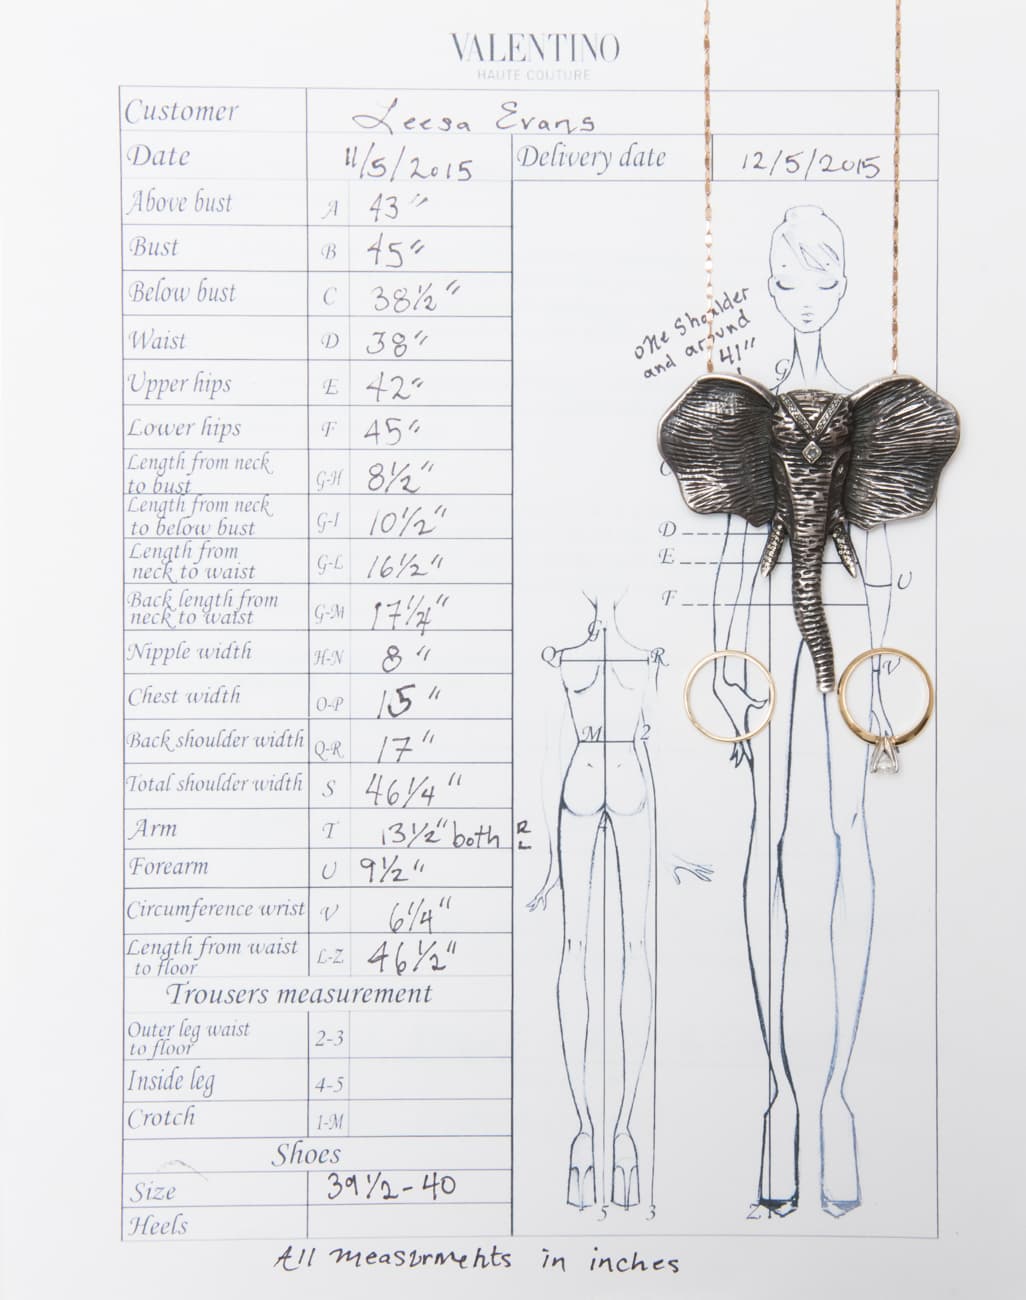 VALENTINO
HAUTE COUTURE
Customer Leesa Evans
Date 11/5/2015 Delivery date 12/5/2015
Above bust A 43"
Bust B 45"
Below bust C 38½"
Waist D 38"
Upper hips E 42"
Lower hips F 45"
Length from neck
to bust G-H 8½"
Length from neck
to below bust G-I 10½"
Length from
neck to waist G-L 16½"
Back length from
neck to waist G-M 17¼"
Nipple width H-N 8"
Chest width O-P 15"
Back shoulder width Q-R 17"
Total shoulder width S 46¼"
Arm T 13½" both R
L
Forearm U 9½"
Circumference wrist V 6¼"
Length from waist
to floor L-Z 46½"
Trousers measurement
Outer leg waist
to floor 2-3
Inside leg 4-5
Crotch 1-M
Shoes
Size 39½-40
Heels
one shoulder
and around
41"
G
C
D
E
F
U
V
G
Q R
M 2
5 3
Z
All measurments in inches